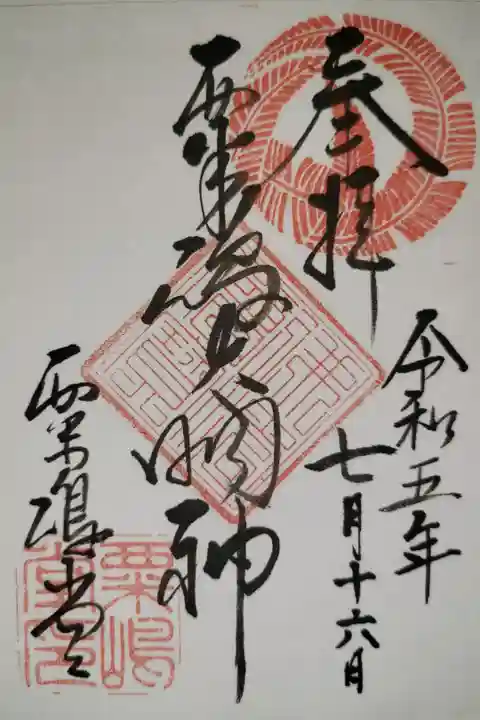 奉拝
令和五年
七月十六日
粟嶋大明神
粟嶋堂
粟嶋